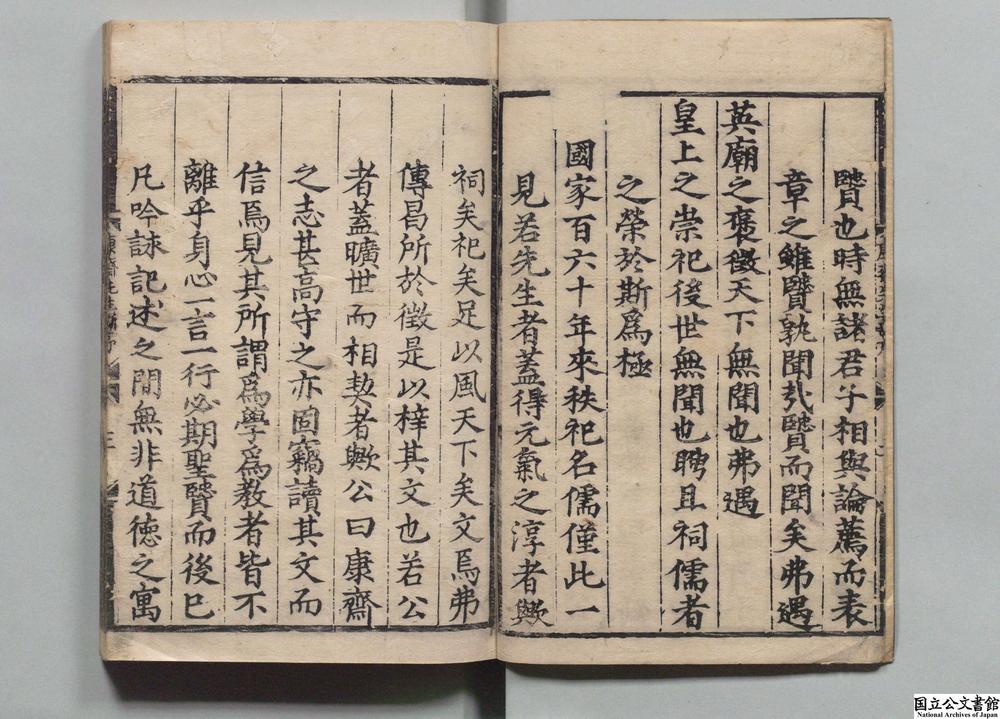 賢也時無諸君子相與論薦而表
章之雖賢孰聞哉賢而聞矣弗遇
英廟之褒徵天下無聞也弗遇
皇上之崇祀後世無聞也聘且祠儒者
之榮於斯爲極
國家百六十年來秩祀名儒僅此一
見若先生者蓋得元氣之淳者歟
祠矣祀矣足以風天下矣文焉弗
傳曷所於徵是以梓其文也若公
者蓋曠世而相契者歟公曰康齋
之志甚高守之亦固竊讀其文而
信焉見其所謂爲學爲教者皆不
離乎身心一言一行必期聖賢而後已
凡吟詠記述之間無非道德之寓
国立公文書館
National Archives of Japan